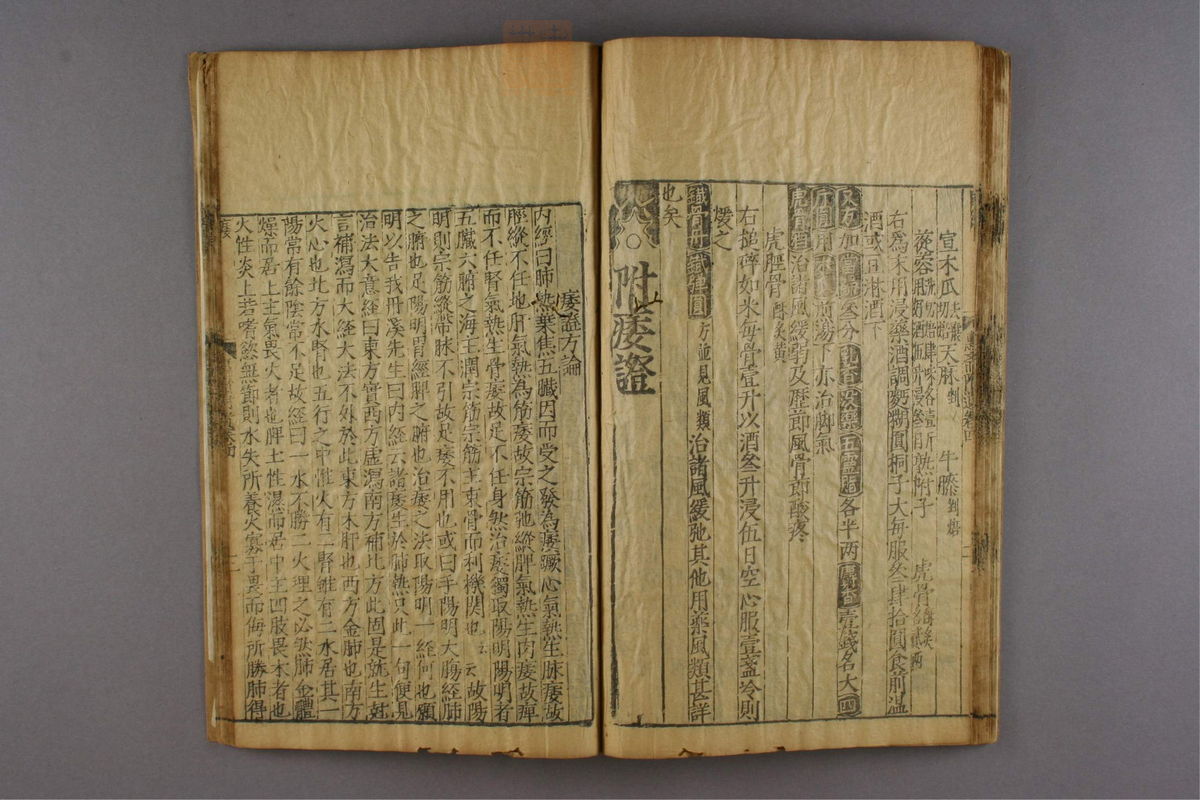 宣木瓜 天麻 牛膝 虎骨
蓯蓉 熟附子
右為末用浸藥酒調麪糊圓桐子大每服叁肆拾圓食前溫
酒或豆淋酒下
又方加 叁分 沒藥五靈脂各半兩麝香壹錢名大四
斤圓用 煎湯下亦治脚氣
虎骨 治諸風緩弱及歷節風骨節酸疼
虎脛骨酥炙黃
右搥碎如米每骨壹升以酒叁升浸伍日空心服壹盞冷則
煖之
鐵骨丹 方並見風類治諸風緩弛其他用藥風類甚詳
也矣
附痿證
痿證方論
內經曰肺熱葉焦五臟因而受之發為痿蹶心氣熱生脉痿故
脛縱不任地肝氣熱為筋痿故宗筋弛縱脾氣熱生肉痿故痺
而不任腎氣熱生骨痿故足不任身然治痿獨取陽明陽明者
五臟六腑之海主潤宗筋宗筋主束骨而利機関也云云故陽
明則宗筋縱帶脉不引故足痿不用也或曰手陽明大腸經肺
之腑也足陽明胃經脾之腑也治痿之法取陽明一經何也願
明以告我丹溪先生曰內經云諸痿生於肺熱只此一句便見
治法大意經曰東方實西方虛瀉南方補北方此固是就生尅
言補瀉而大經大法不外於此東方木肝也西方金肺也南方
火心也北方水腎也五行之中惟火有二腎雖有二水居其一
陽常有餘陰常不足故經曰一水不勝二火理之必然肺金體
燥而居上主氣畏火者也脾土性濕而居中主四肢畏木者也
火性炎上若嗜慾無節則水失所養火寡于畏而侮所勝肺得